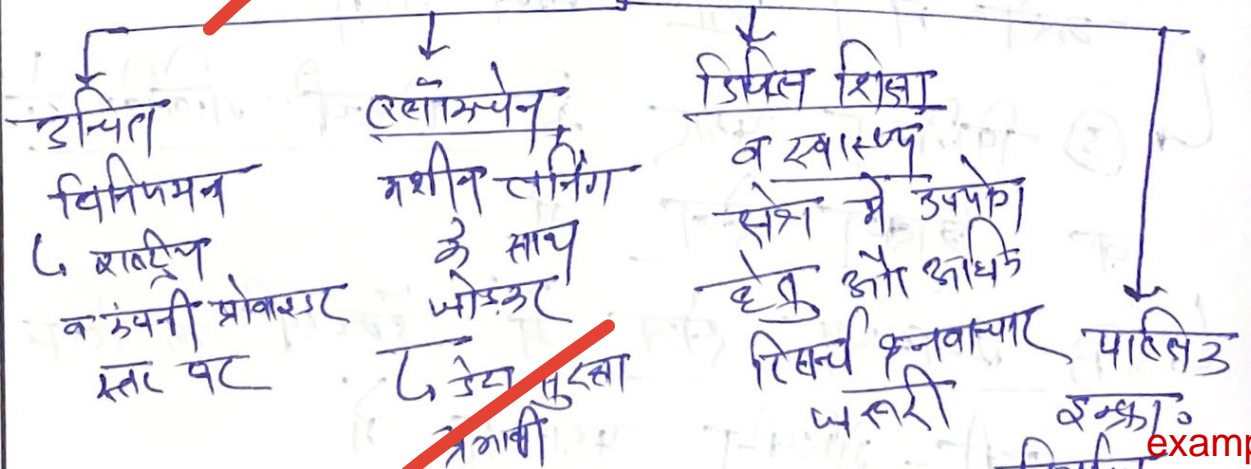 उचित
विनियमन
राष्ट्रीय
व कंपनी प्रोवाइडर
स्तर पर
ब्लॉकचेन,
मशीन लर्निंग
के साथ
जोड़कर
डेटा सुरक्षा
प्रभावी
डिजिटल शिक्षा
व स्वास्थ्य
क्षेत्र में उपयोग
हेतु और अधिक
रिसर्च व नवाचार
जरूरी
पब्लिक
इन्फ्रा॰
examp